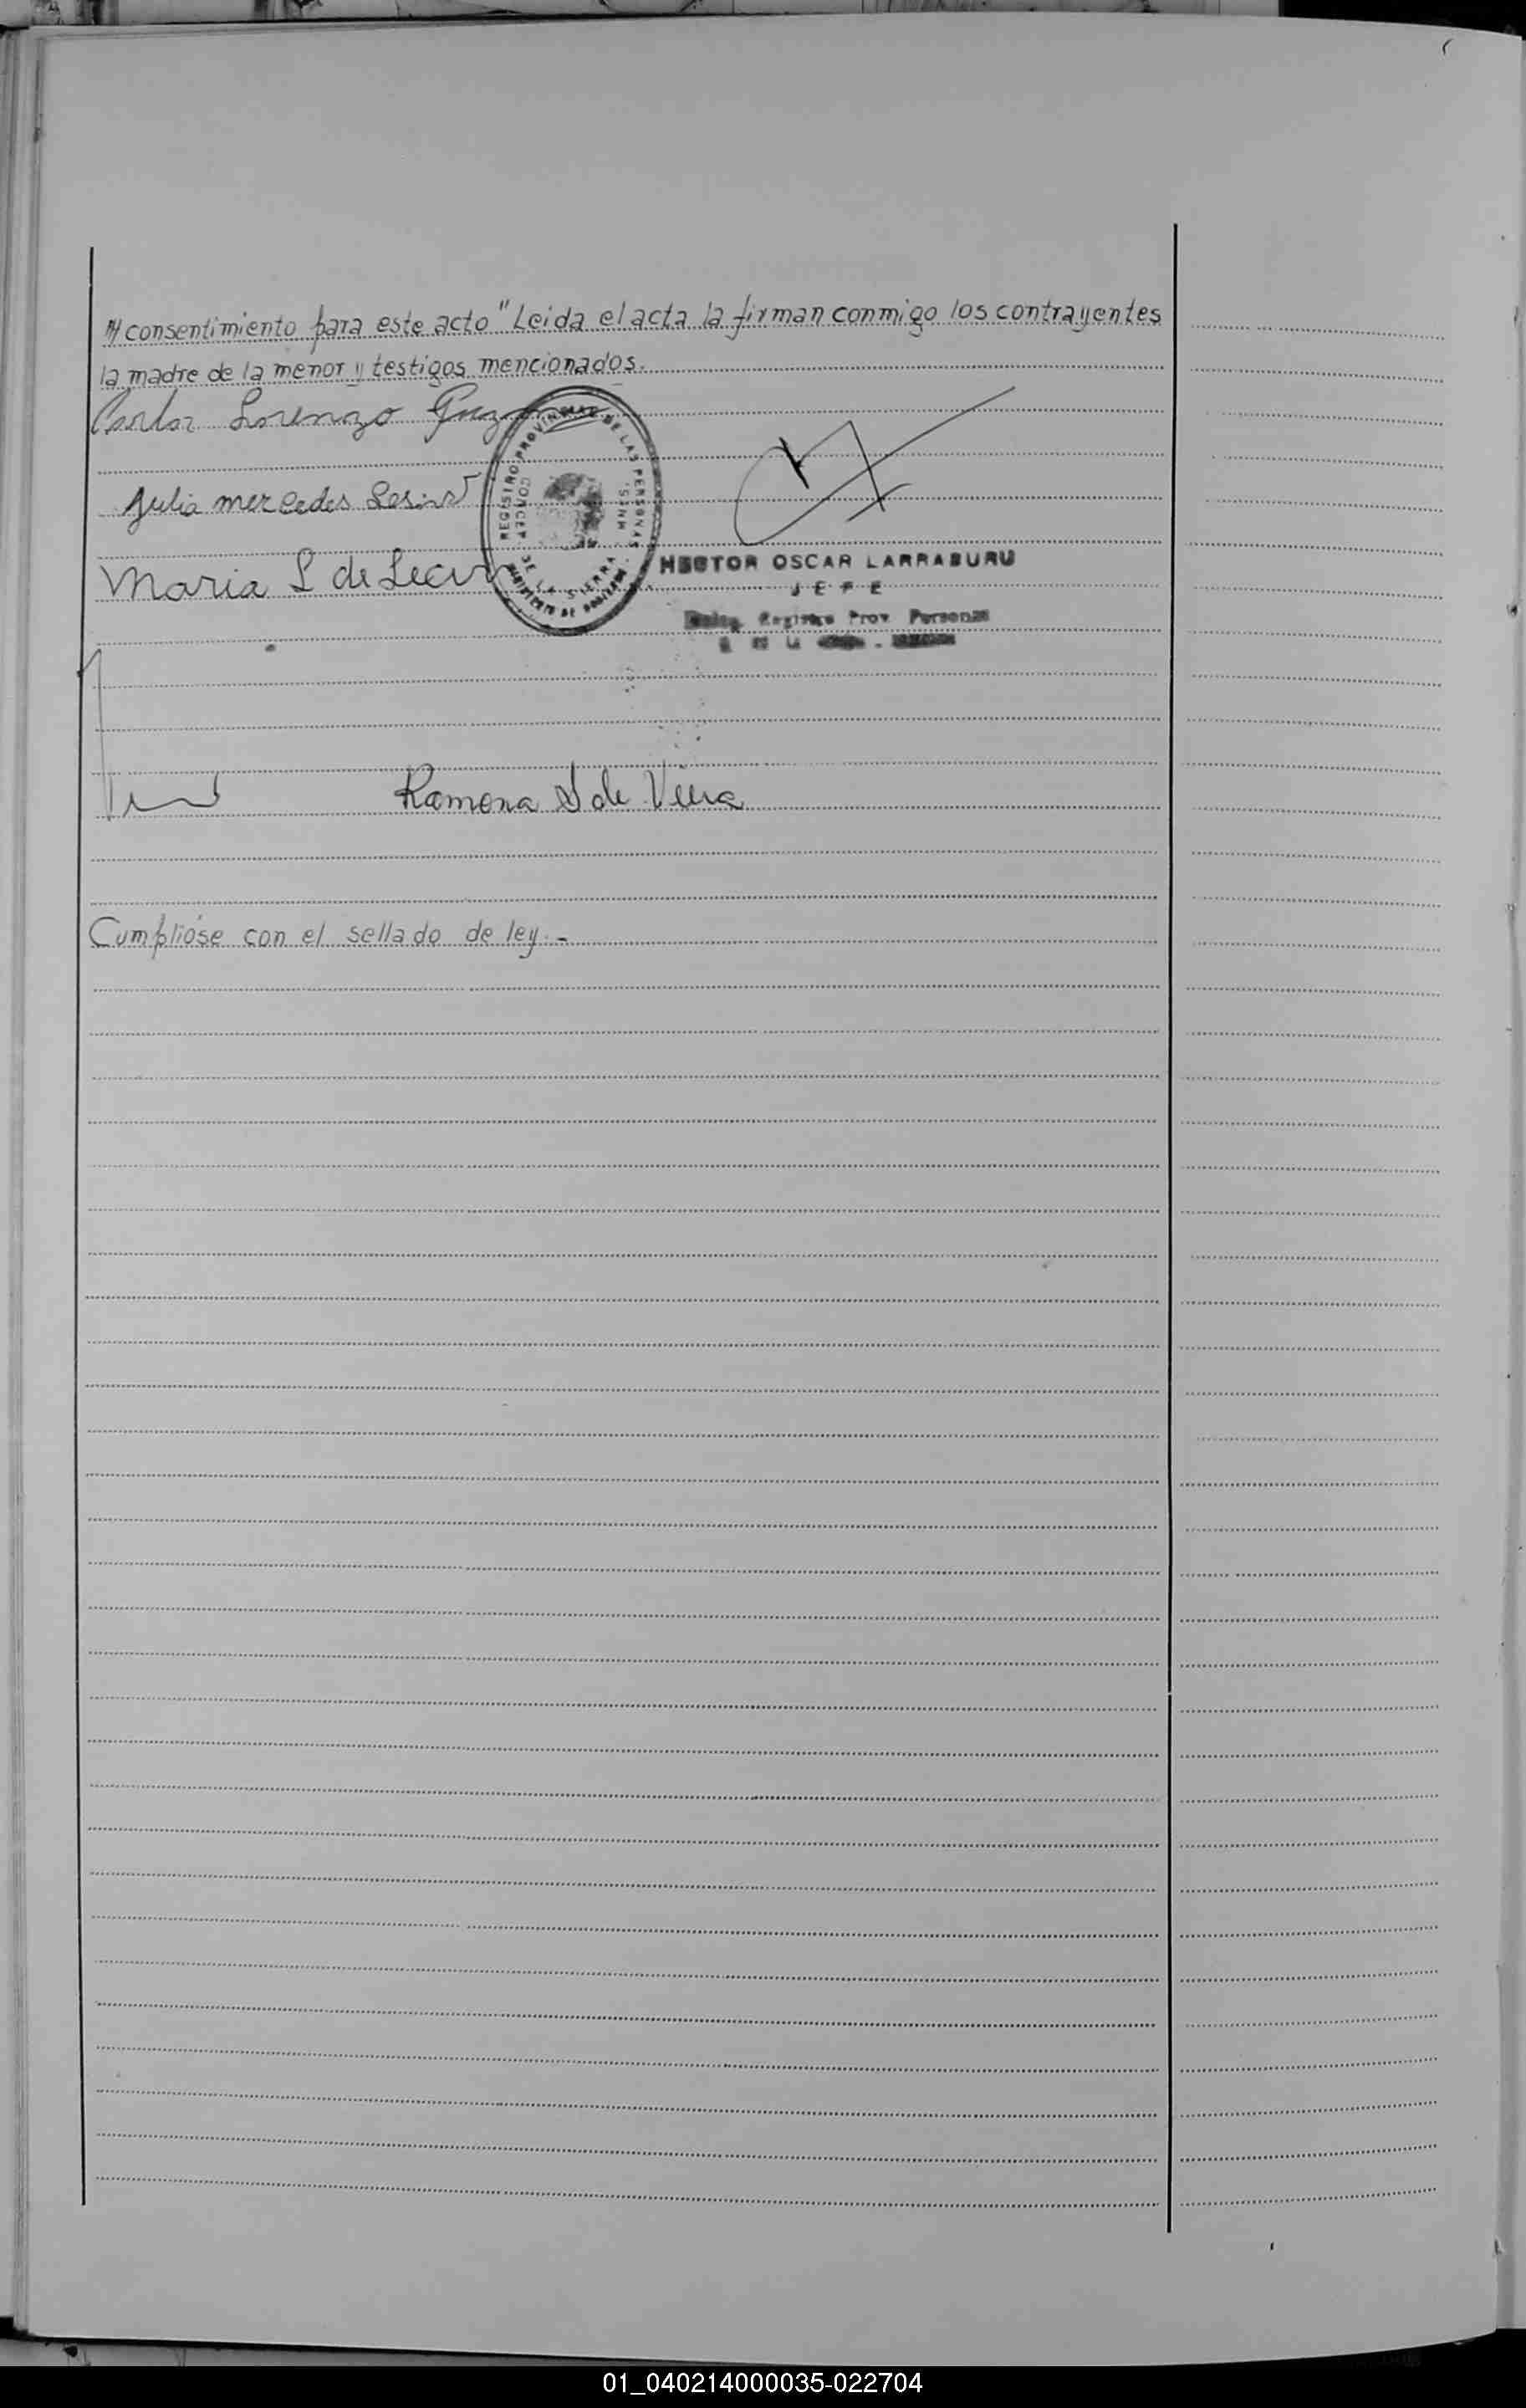 consentimiento para este acto" Leida el acta la firman conmigo los contrayentes
la madre de la menor y testigos mencionados.
Carlos Lorenzo
Julia mercedes
Maria L de
REGISTRO PROVINCIAL DE LAS PERSONAS
DE LA SIERRA
HECTOR OSCAR LARRABURU
JEFE
Deleg. Registro Prov Personas
Ramona S de
Cumplióse con el sellado de ley.-
01_040214000035-022704